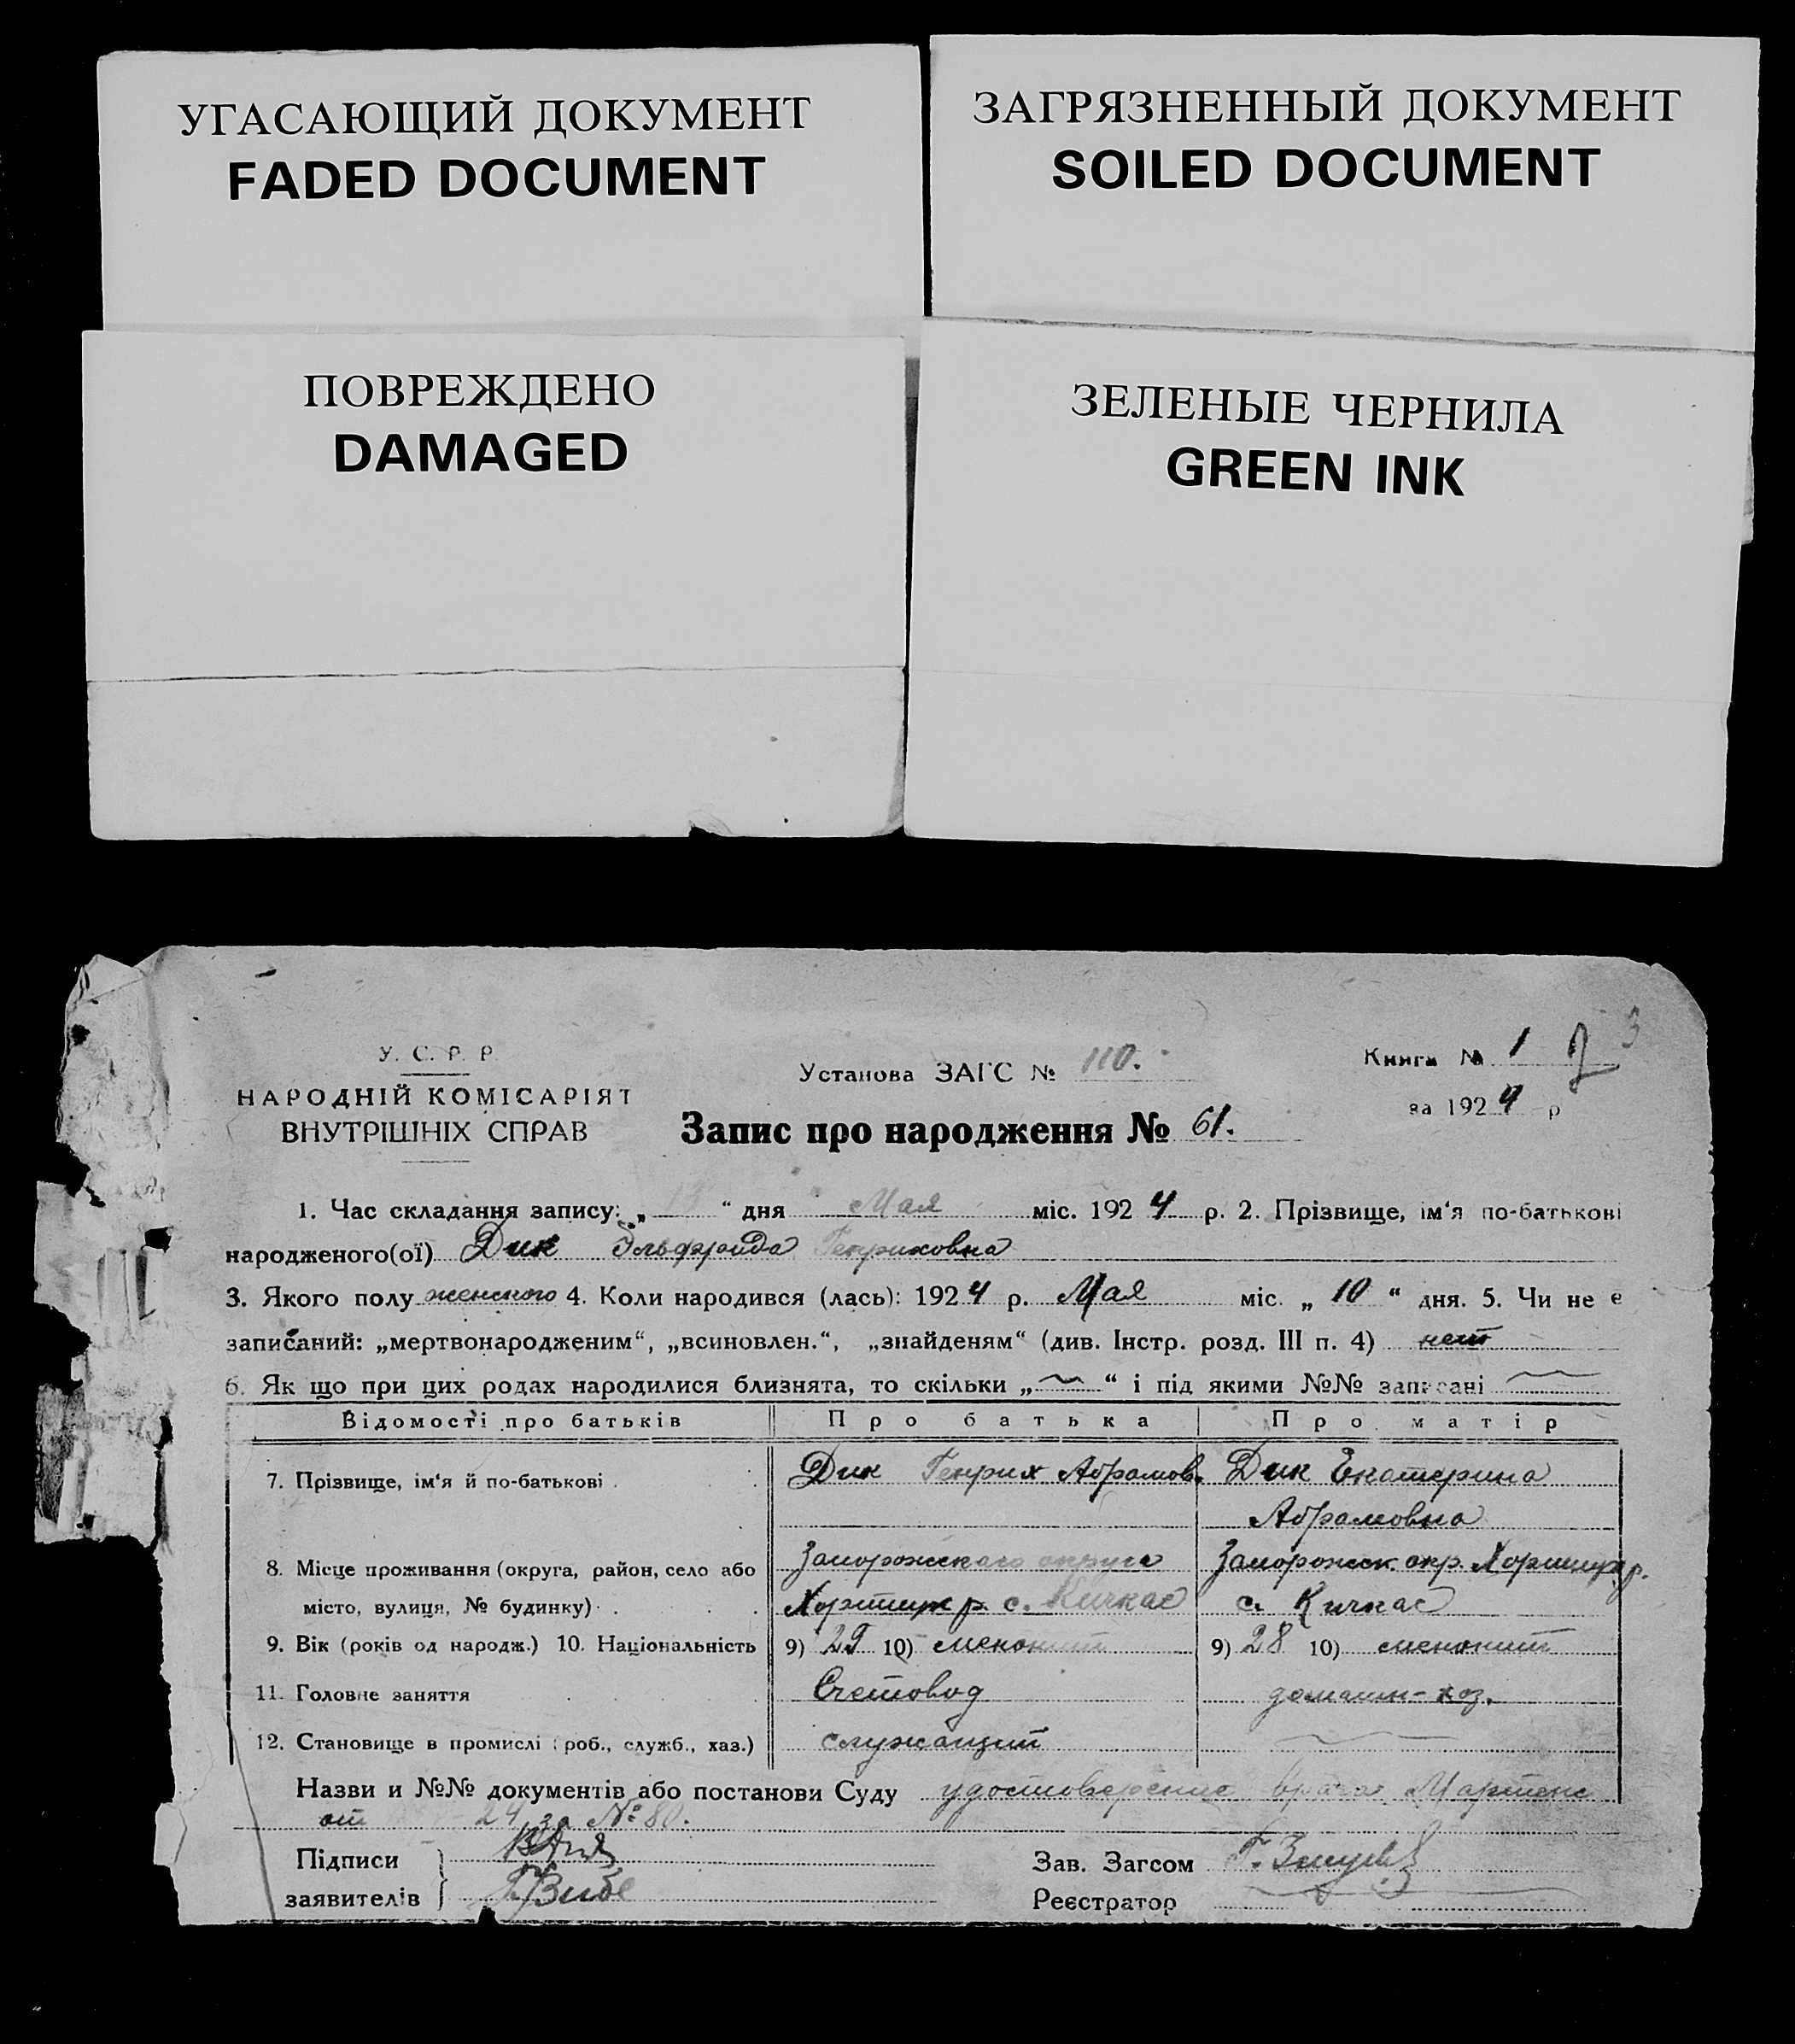 УГАСАЮЩИЙ ДОКУМЕНТ
FADED DOCUMENT
ЗАГРЯЗНЕННЫЙ ДОКУМЕНТ
SOILED DOCUMENT
ПОВРЕЖДЕНО
DAMAGED
ЗЕЛЕНЫЕ ЧЕРНИЛА
GREEN INK
У. С. Р. Р.
НАРОДНІЙ КОМІСАРІЯТ
ВНУТРІШНІХ СПРАВ
Установа ЗАГС № 110.
Запис про народження № 61.
Книга № 1
за 1924 р
1. Час складання запису: „ 13 “ дня Мая міс. 1924 р. 2. Прізвище, ім‘я по-батькові
народженого(ої) Дик Эльфрида Генриховна
3. Якого полу женского 4. Коли народився (лась): 1924 р. Мая міс. „ 10 “ дня. 5. Чи не є
записаний: „мертвонародженим“, „всиновлен.“, „знайденям“ (див. Інстр. розд. III п. 4) нет
6. Як що при цих родах народилися близнята, то скільки „ “ і під якими №№ записані
Відомості про батьків Про батька Про матір
7. Прізвище, ім‘я й по-батькові . Дик Генрих Абрамов. Дик Екатерина
Абрамовна
8. Місце проживання (округа, район, село або Запорожскаго округа Запорожск. окр. Хортицк р.
місто, вулиця, № будинку) . Хортицк р. с. Кичкас с. Кичкас
9. Вік (років од народж.) 10. Національність 9) 29 10) менонит 9) 28 10) менонит
11. Головне заняття Счетовод домашн-хоз.
12. Становище в промислі (роб., служб., хаз.) служащий
Назви и №№ документів або постанови Суду удостоверение врача Мартенс
от 24 за № 80.
Підписи
заявителів Г. Вибе
Зав. Загсом Г.
Реєстратор